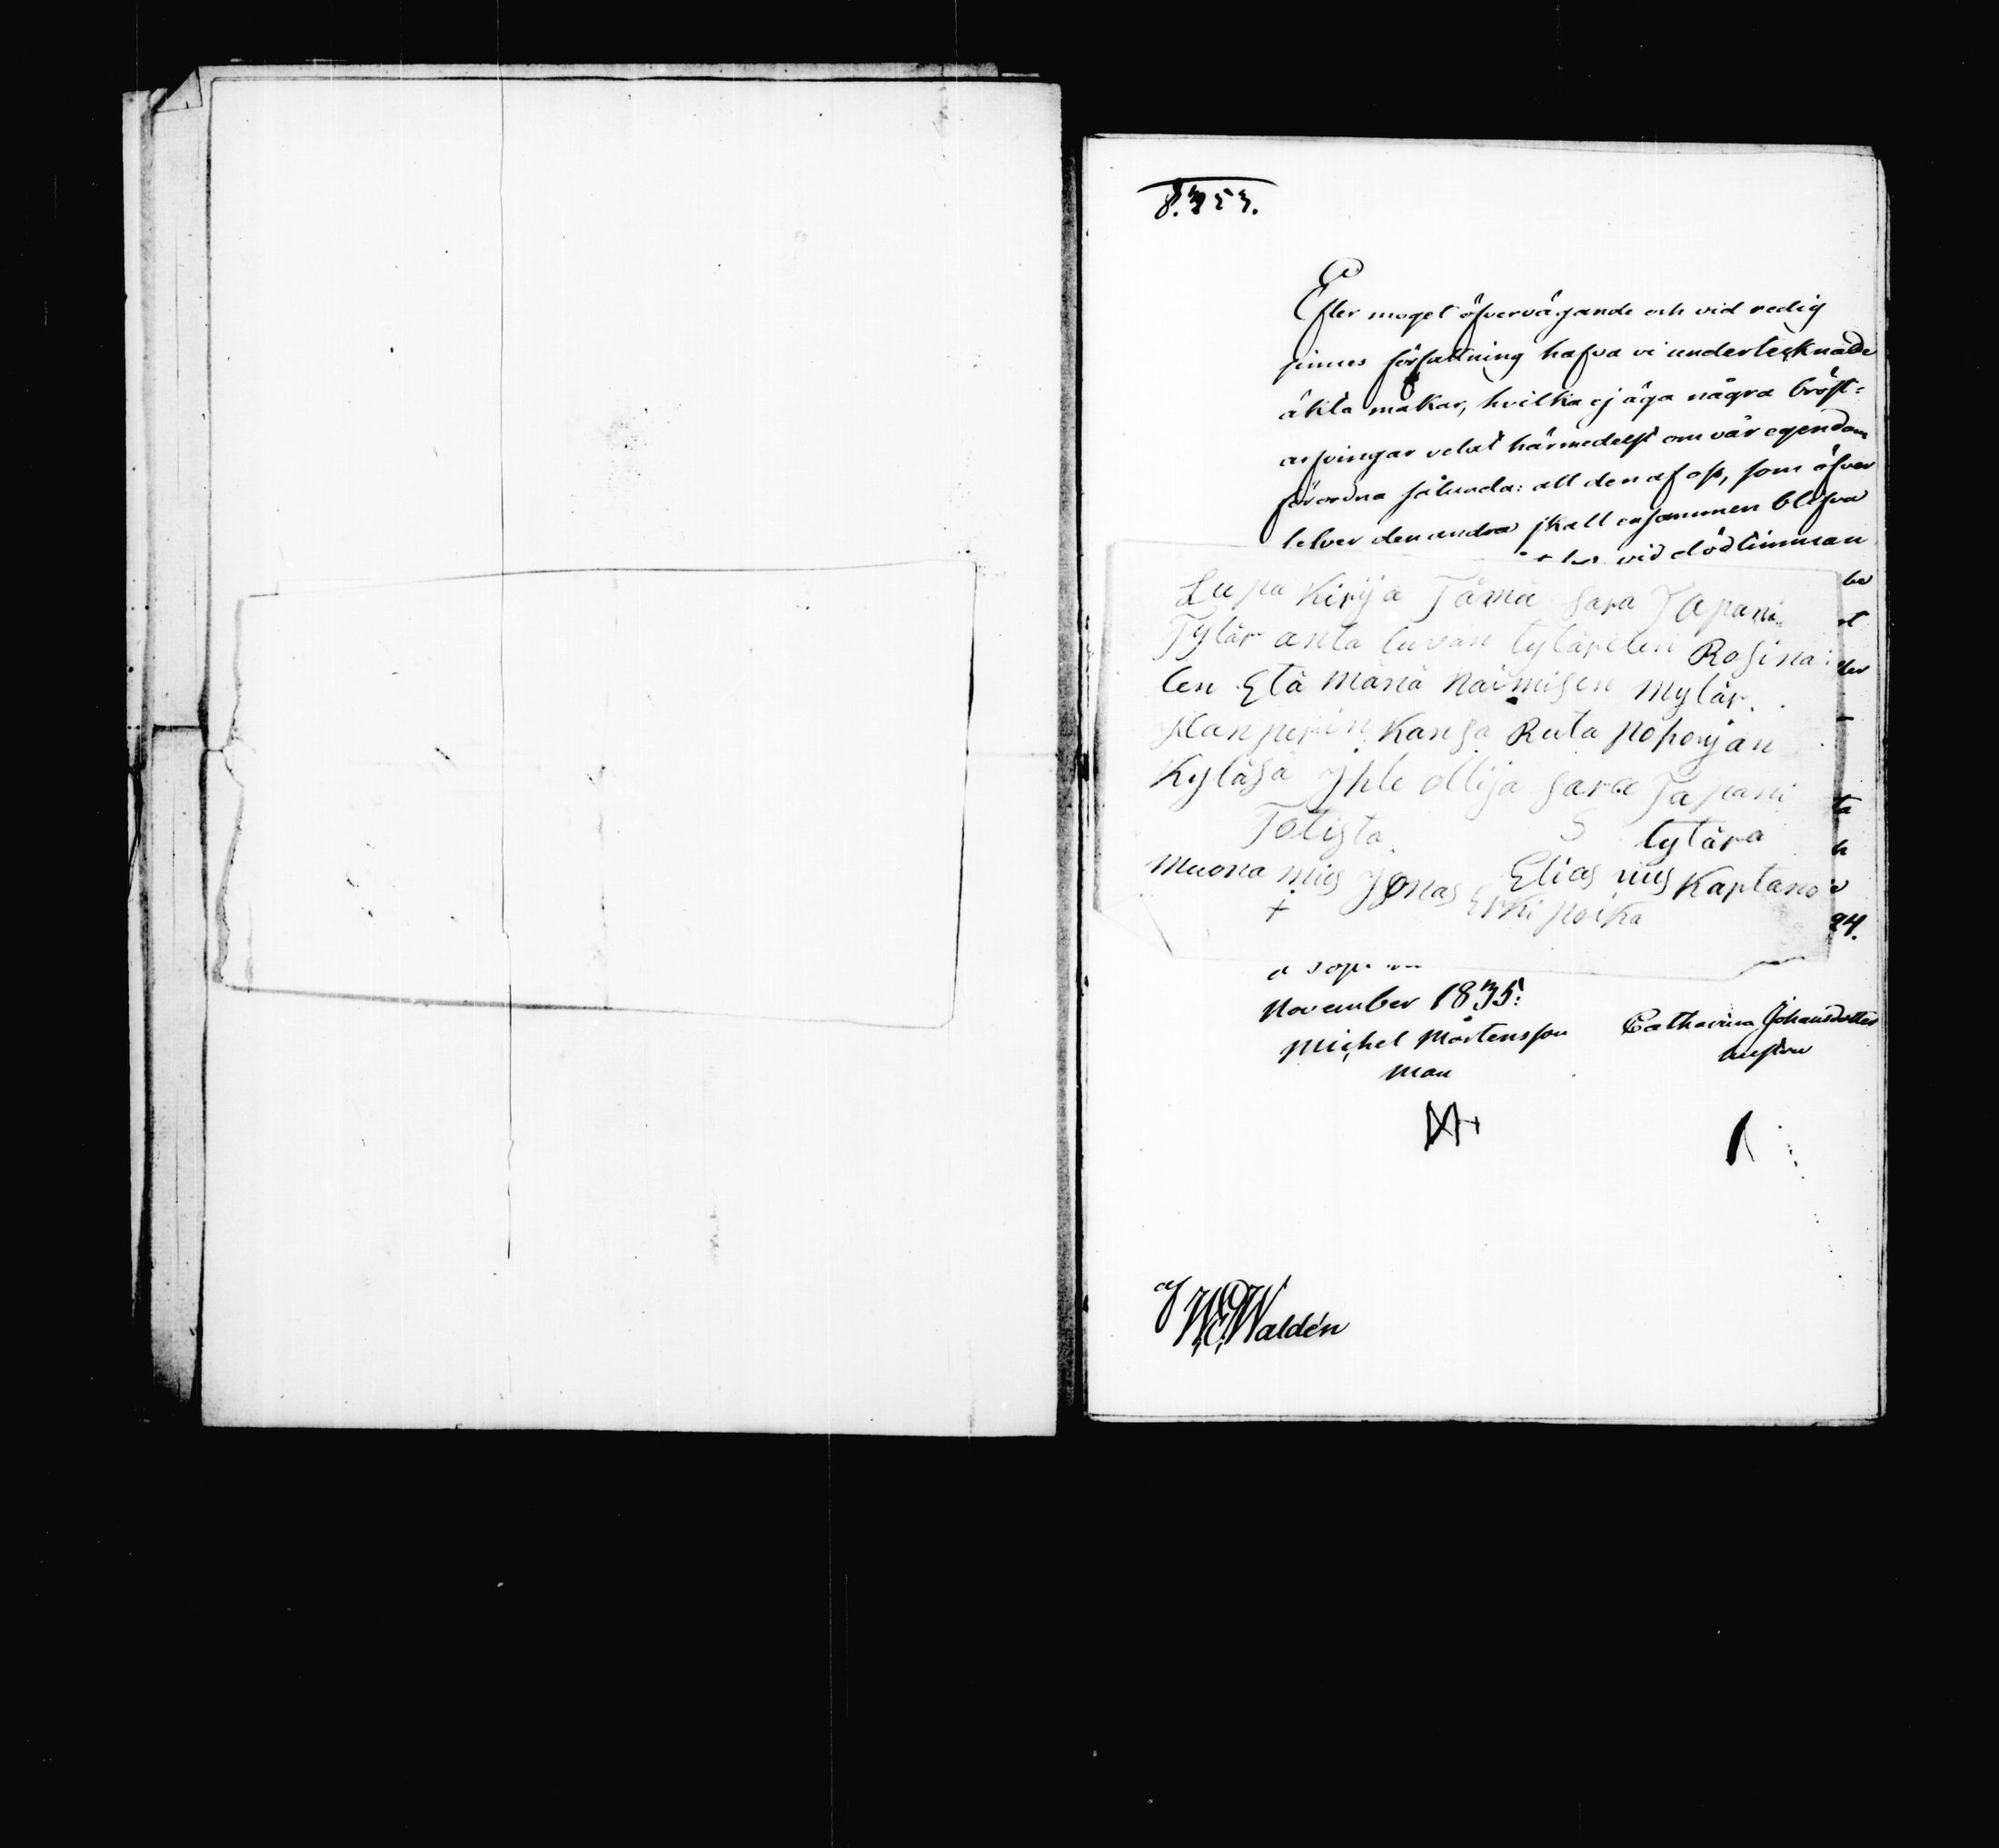 8.353.
Efter moget öfvervägande och vid redig
sinnes författning hafva vi undertecknade
äkta makar, hvilka ej äga några bröst-
arfvingar velat härmedelst om vår egendom
förordna sålunda: att den af oss, som öfver
lefver den andra skall ensammen blifva
vid dödtimman
Lupa Kirja Tämä Sara Tapani
Tytär anta luvan tytärelen Rosina:
len Etä mänä naimisen mytär.
Kansa Ruta pohorjan
Kyläsä Yhle ollija Sara Tapani
Totista S tytära
Muona mies Jonas Elias nius Kaptano
+ Erki poika
24.
November 1835:
Michel Mårtensson Catharina Johansdotter
man hustru
af W.E. Waldén